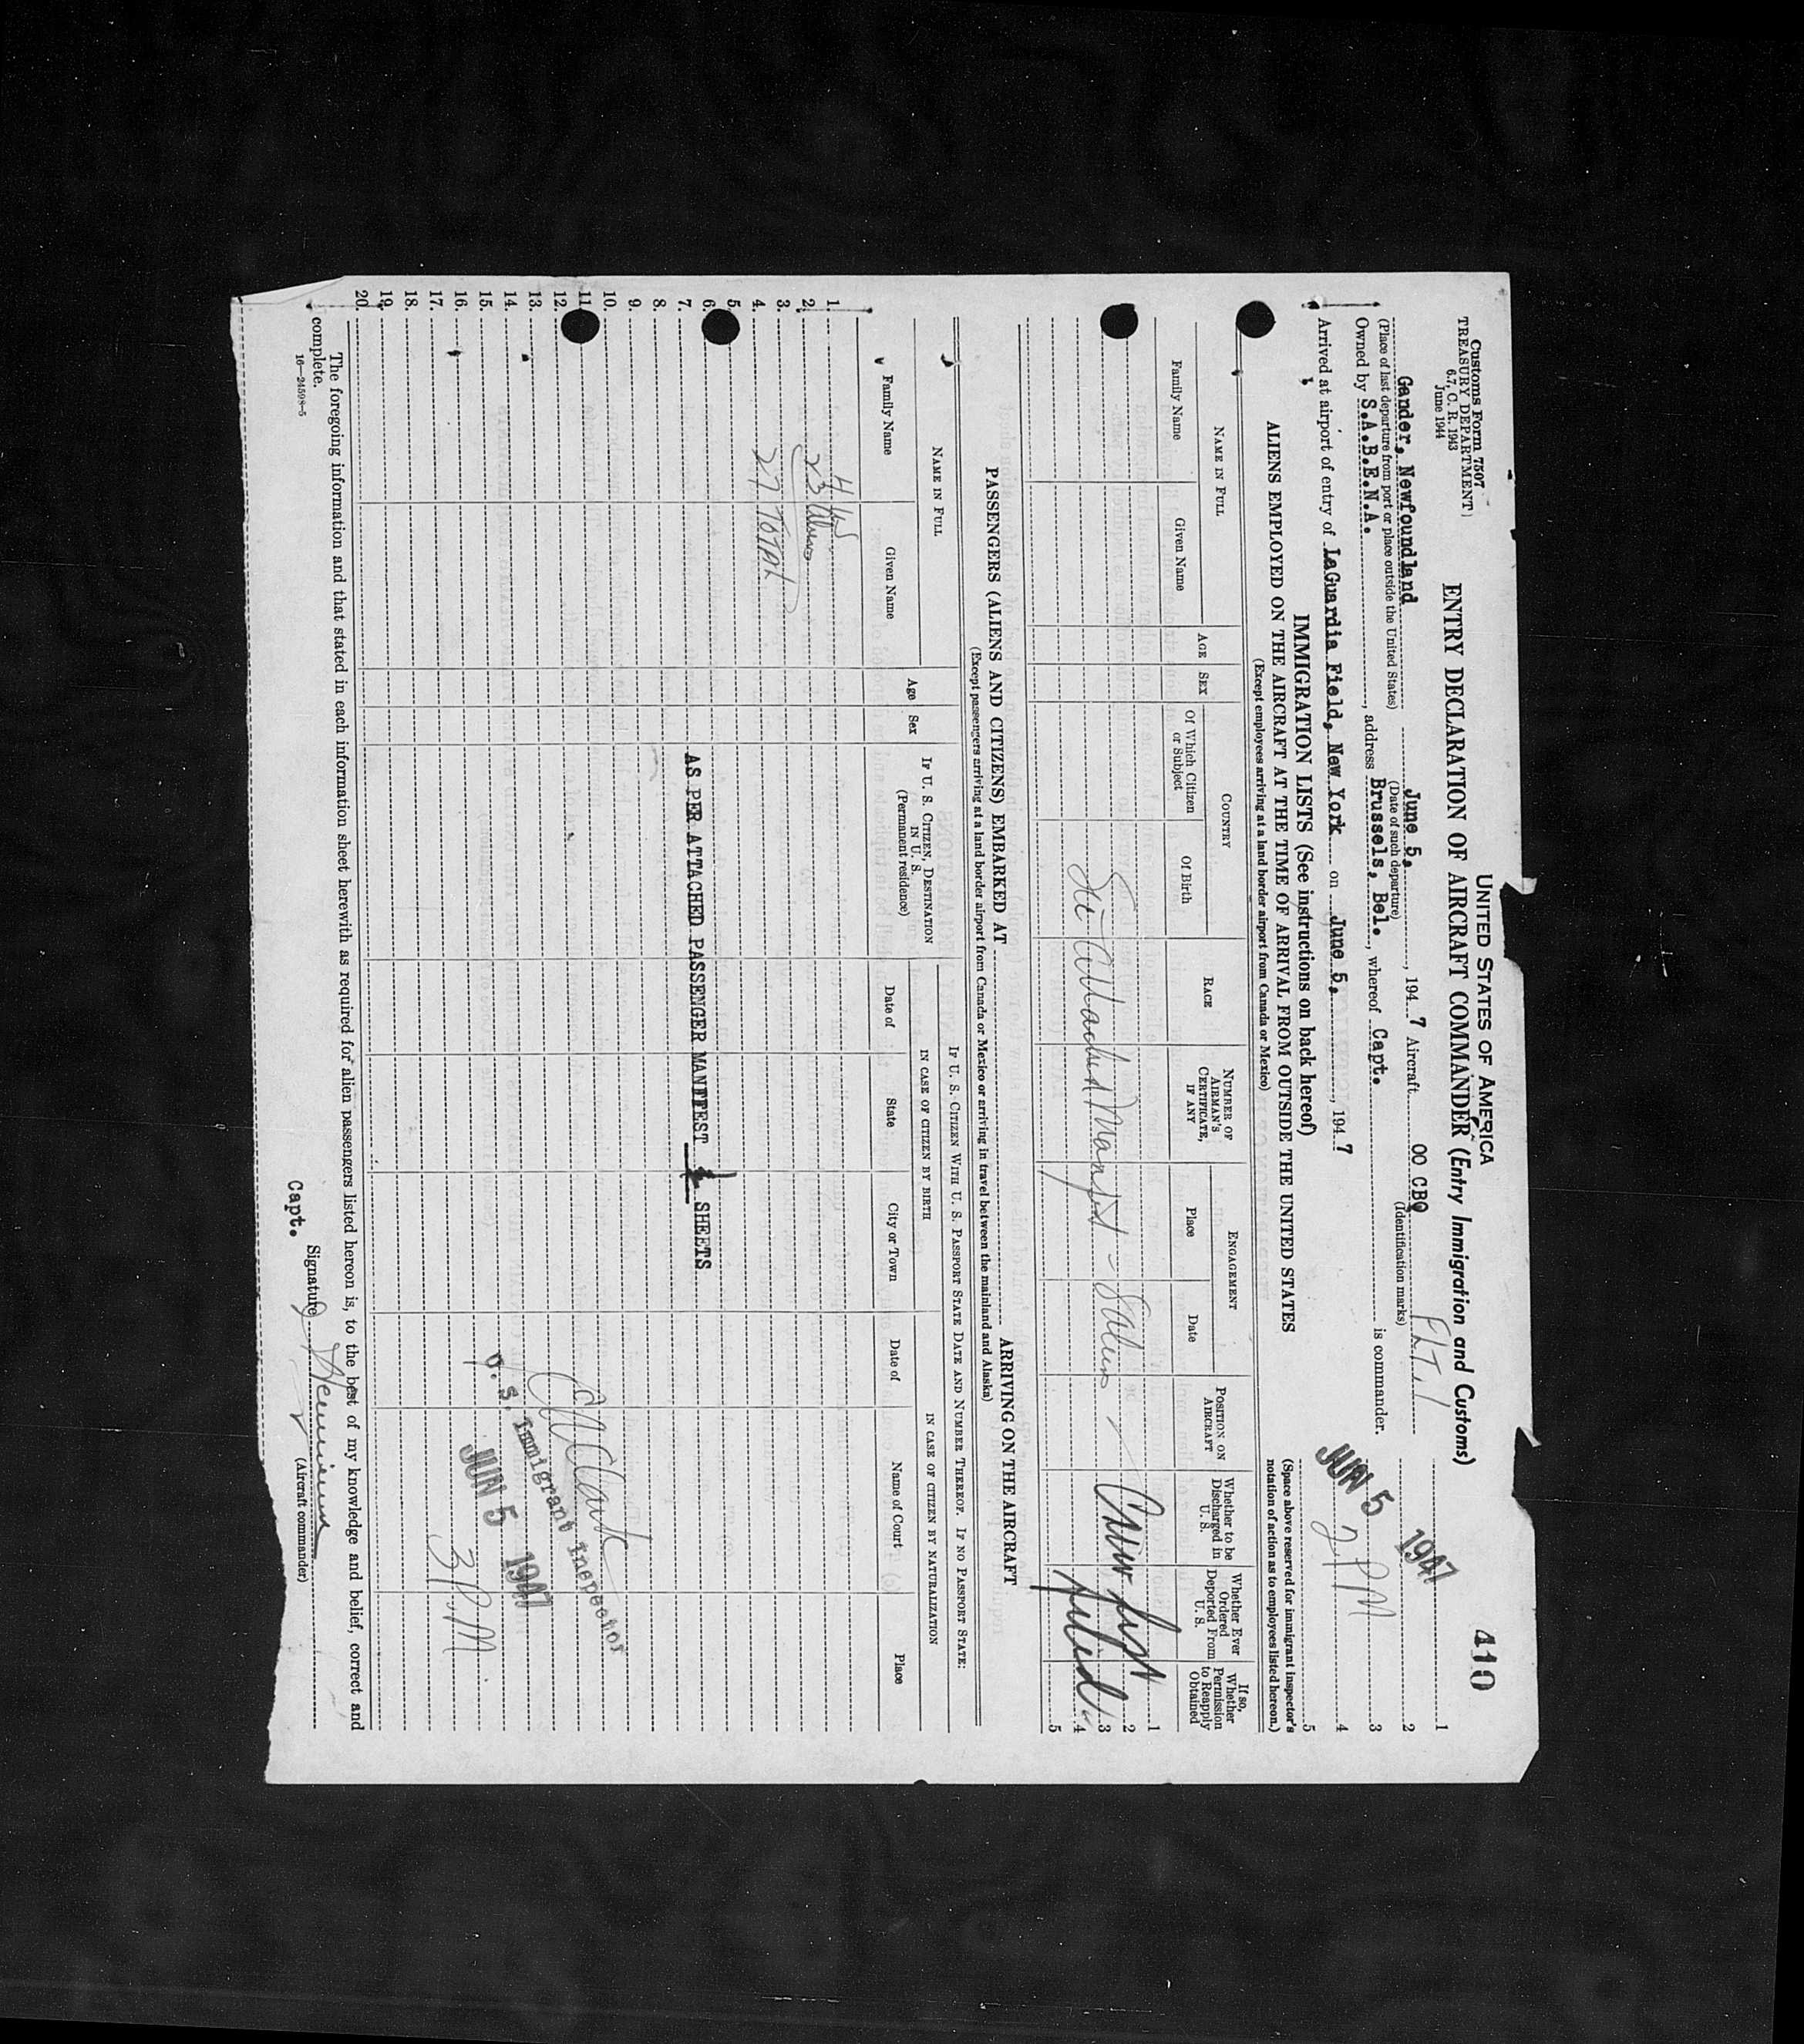 Customs Form 7507
TREASURY DEPARTMENT
6.7, C. R. 1943
June 1944
UNITED STATES OF AMERICA
410
ENTRY DECLARATION OF AIRCRAFT COMMANDER (Entry Immigration and Customs)
FLT. 1
Gander, Newfoundland June 5, 194 7 Aircraft OO CBQ
(Place of last departure from port or place outside the United States) (Date of such departure) (Identification marks)
Owned by S.A.B.E.N.A. , address Brussels, Bel. , whereof Capt. is commander.
Arrived at airport of entry of LaGuardia Field, New York on June 5, , 194 7
JUN 5 1947
2 PM
1
2
3
4
5
(Space above reserved for immigrant inspector's notation of action as to employees listed hereon.)
IMMIGRATION LISTS (See instructions on back hereof)
ALIENS EMPLOYED ON THE AIRCRAFT AT THE TIME OF ARRIVAL FROM OUTSIDE THE UNITED STATES
(Except employees arriving at a land border airport from Canada or Mexico)
NAME IN FULL
Family Name Given Name
AGE SEX
COUNTRY
Of Which Citizen or Subject Of Birth
RACE
NUMBER OF AIRMAN'S CERTIFICATE, IF ANY
ENGAGEMENT
Place Date
POSITION ON AIRCRAFT
Whether to be Discharged in U. S.
Whether Ever Ordered Deported From U. S.
If so, Whether Permission to Reapply Obtained
1
2
3
4
5
See Attached Manifest - Sabena
Crew List
Filed
PASSENGERS (ALIENS AND CITIZENS) EMBARKED AT ARRIVING ON THE AIRCRAFT
(Except passengers arriving at a land border airport from Canada or Mexico or arriving in travel between the mainland and Alaska)
NAME IN FULL
Family Name Given Name
Age Sex
IF U. S. CITIZEN, DESTINATION IN U. S.
(Permanent residence)
IF U. S. CITIZEN WITH U. S. PASSPORT STATE DATE AND NUMBER THEREOF. IF NO PASSPORT STATE:
IN CASE OF CITIZEN BY BIRTH IN CASE OF CITIZEN BY NATURALIZATION
Date of State City or Town Date of Name of Court Place
1.
2.
3.
4.
5.
6.
7.
8.
9.
10.
11.
12.
13.
14.
15.
16.
17.
18.
19.
20.
4 US
23 Aliens
27 TOTAL
AS PER ATTACHED PASSENGER MANIFEST SHEETS
Clark
U. S. Immigrant Inspector
JUN 5 1947
3 P.M.
The foregoing information and that stated in each information sheet herewith as required for alien passengers listed hereon is, to the best of my knowledge and belief, correct and
complete.
16—24598-5
Capt.
Signature
(Aircraft commander)